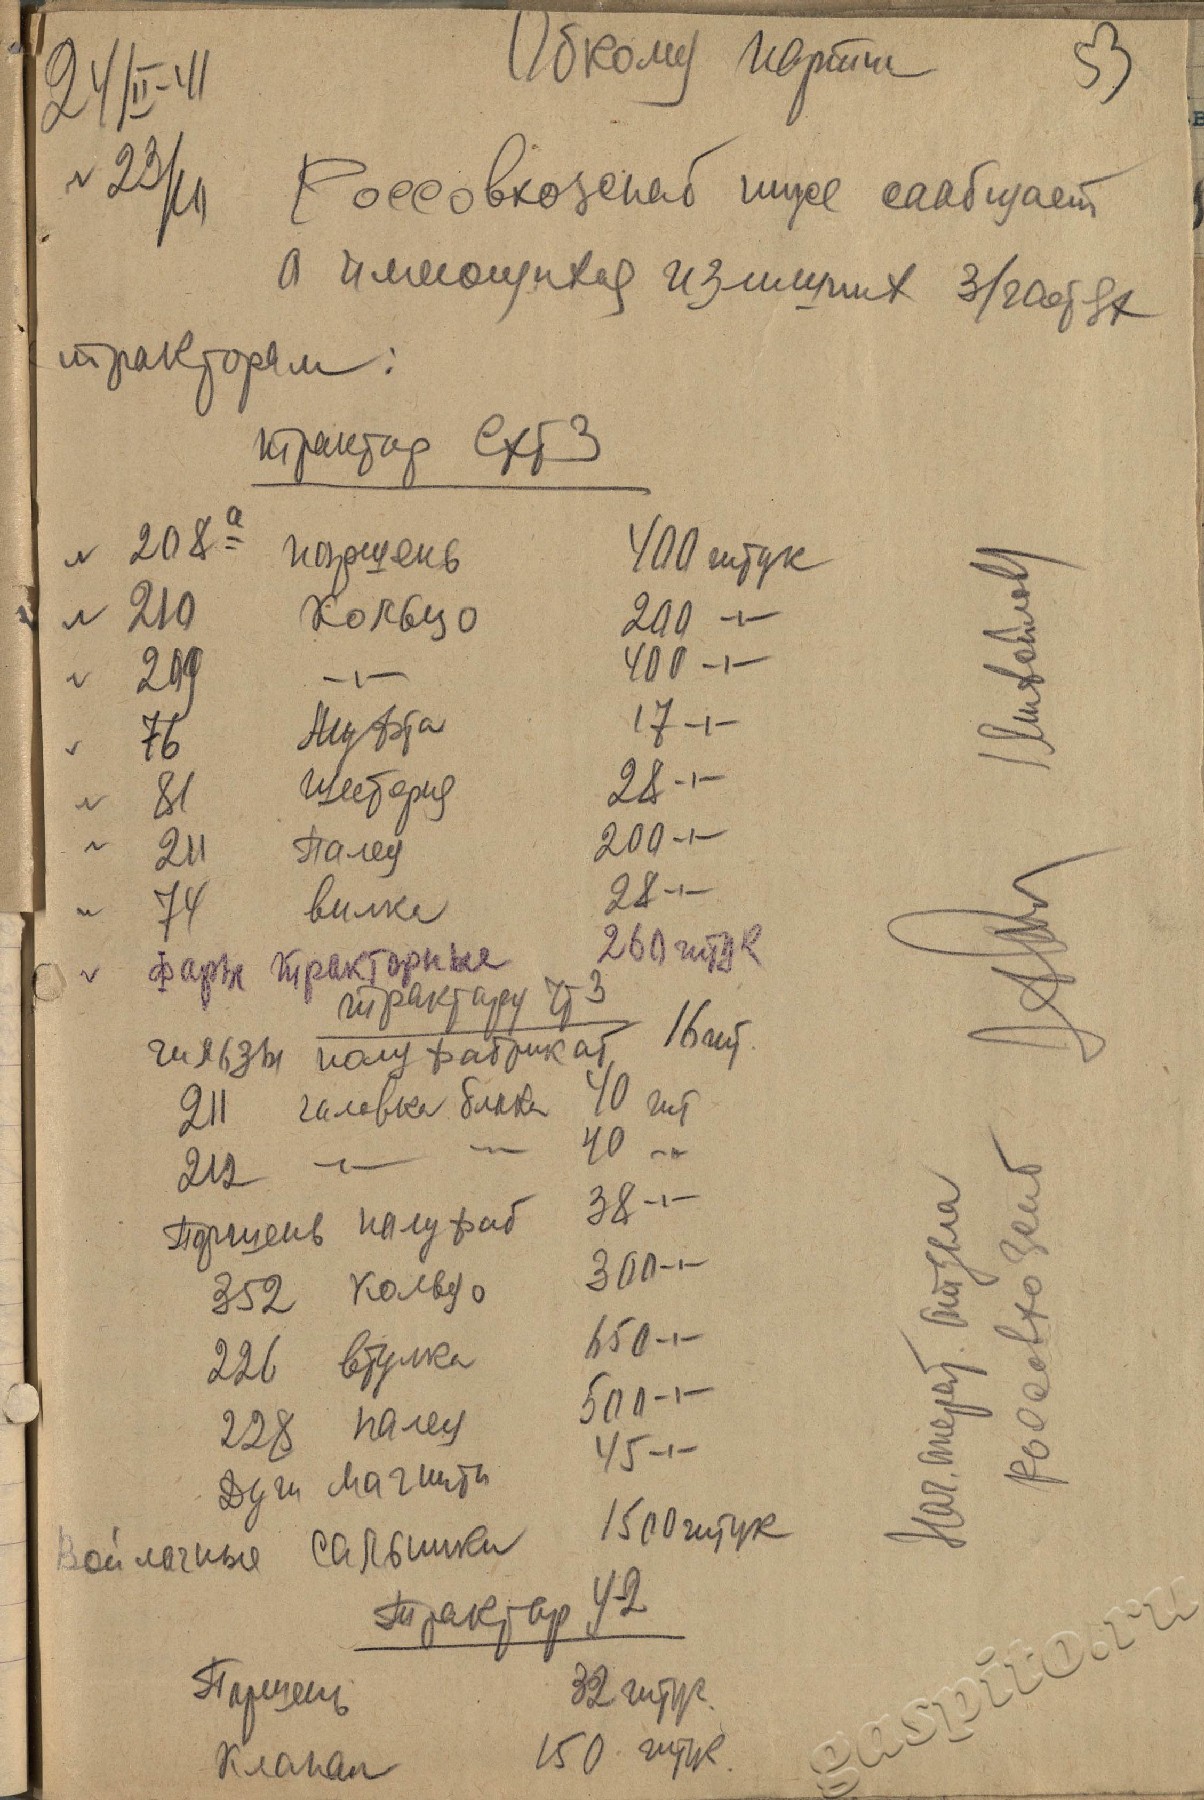 24/II-41
Обкому партии
53
№ 23/
Россовхозснаб ниже сообщает
о имеющихся излишних з/частях
тракторам:
трактор СХТЗ
№ 208а поршень 400 штук
№ 210 Кольцо 200 -"-
№ 209 -"- 400 -"-
№ 76 Муфта 17 -"-
№ 81 Шестерня 28 -"-
№ 211 Палец 200 -"-
№ 74 вилка 28 -"-
фары тракторные 260 штук
трактору ЧТЗ
гильзы полуфабрикат 16 шт.
211 головка блока 40 шт
212 -"- -"- 40 -"-
Поршень полуфаб 38 -"-
352 кольцо 300 -"-
226 втулка 650 -"-
228 палец 500 -"-
Дуги магнита 45 -"-
Войлочные сальники 1500 штук
Трактор У-2
Поршень 32 штук.
Клапан 150 штук.
Нач. операт. отдела
Россовхозснаб
gaspito.ru